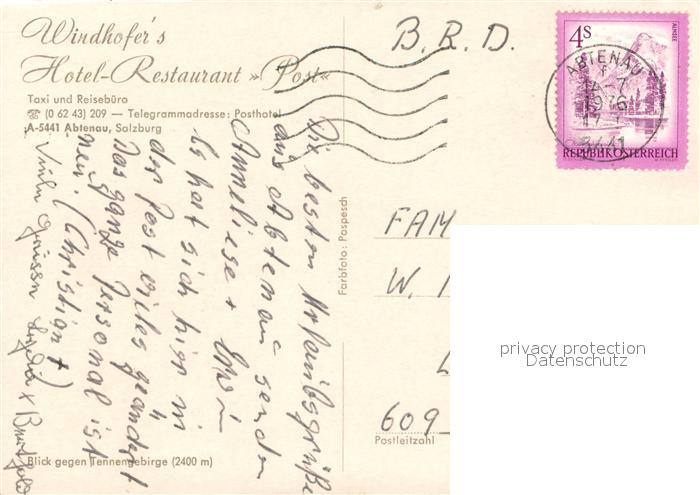 Windhofer's
Hotel-Restaurant »Post«
Taxi und Reisebüro
☎ (0 62 43) 209 — Telegrammadresse: Posthotel
A-5441 Abtenau, Salzburg
B.R.D.
4 S
ALMSEE
REPUBLIK ÖSTERREICH
ABTENAU
1976
5441
Die besten Urlaubsgrüße
aus Abtenau senden
Anneliese + Erwin
Es hat sich hier in
der Post vieles geändert
Das ganze Personal ist
neu. (Christian +)
Viele Grüsse
Farbfoto: Pospesch
FAM
W.
609
Postleitzahl
Blick gegen Tennengebirge (2400 m)
privacy protection
Datenschutz